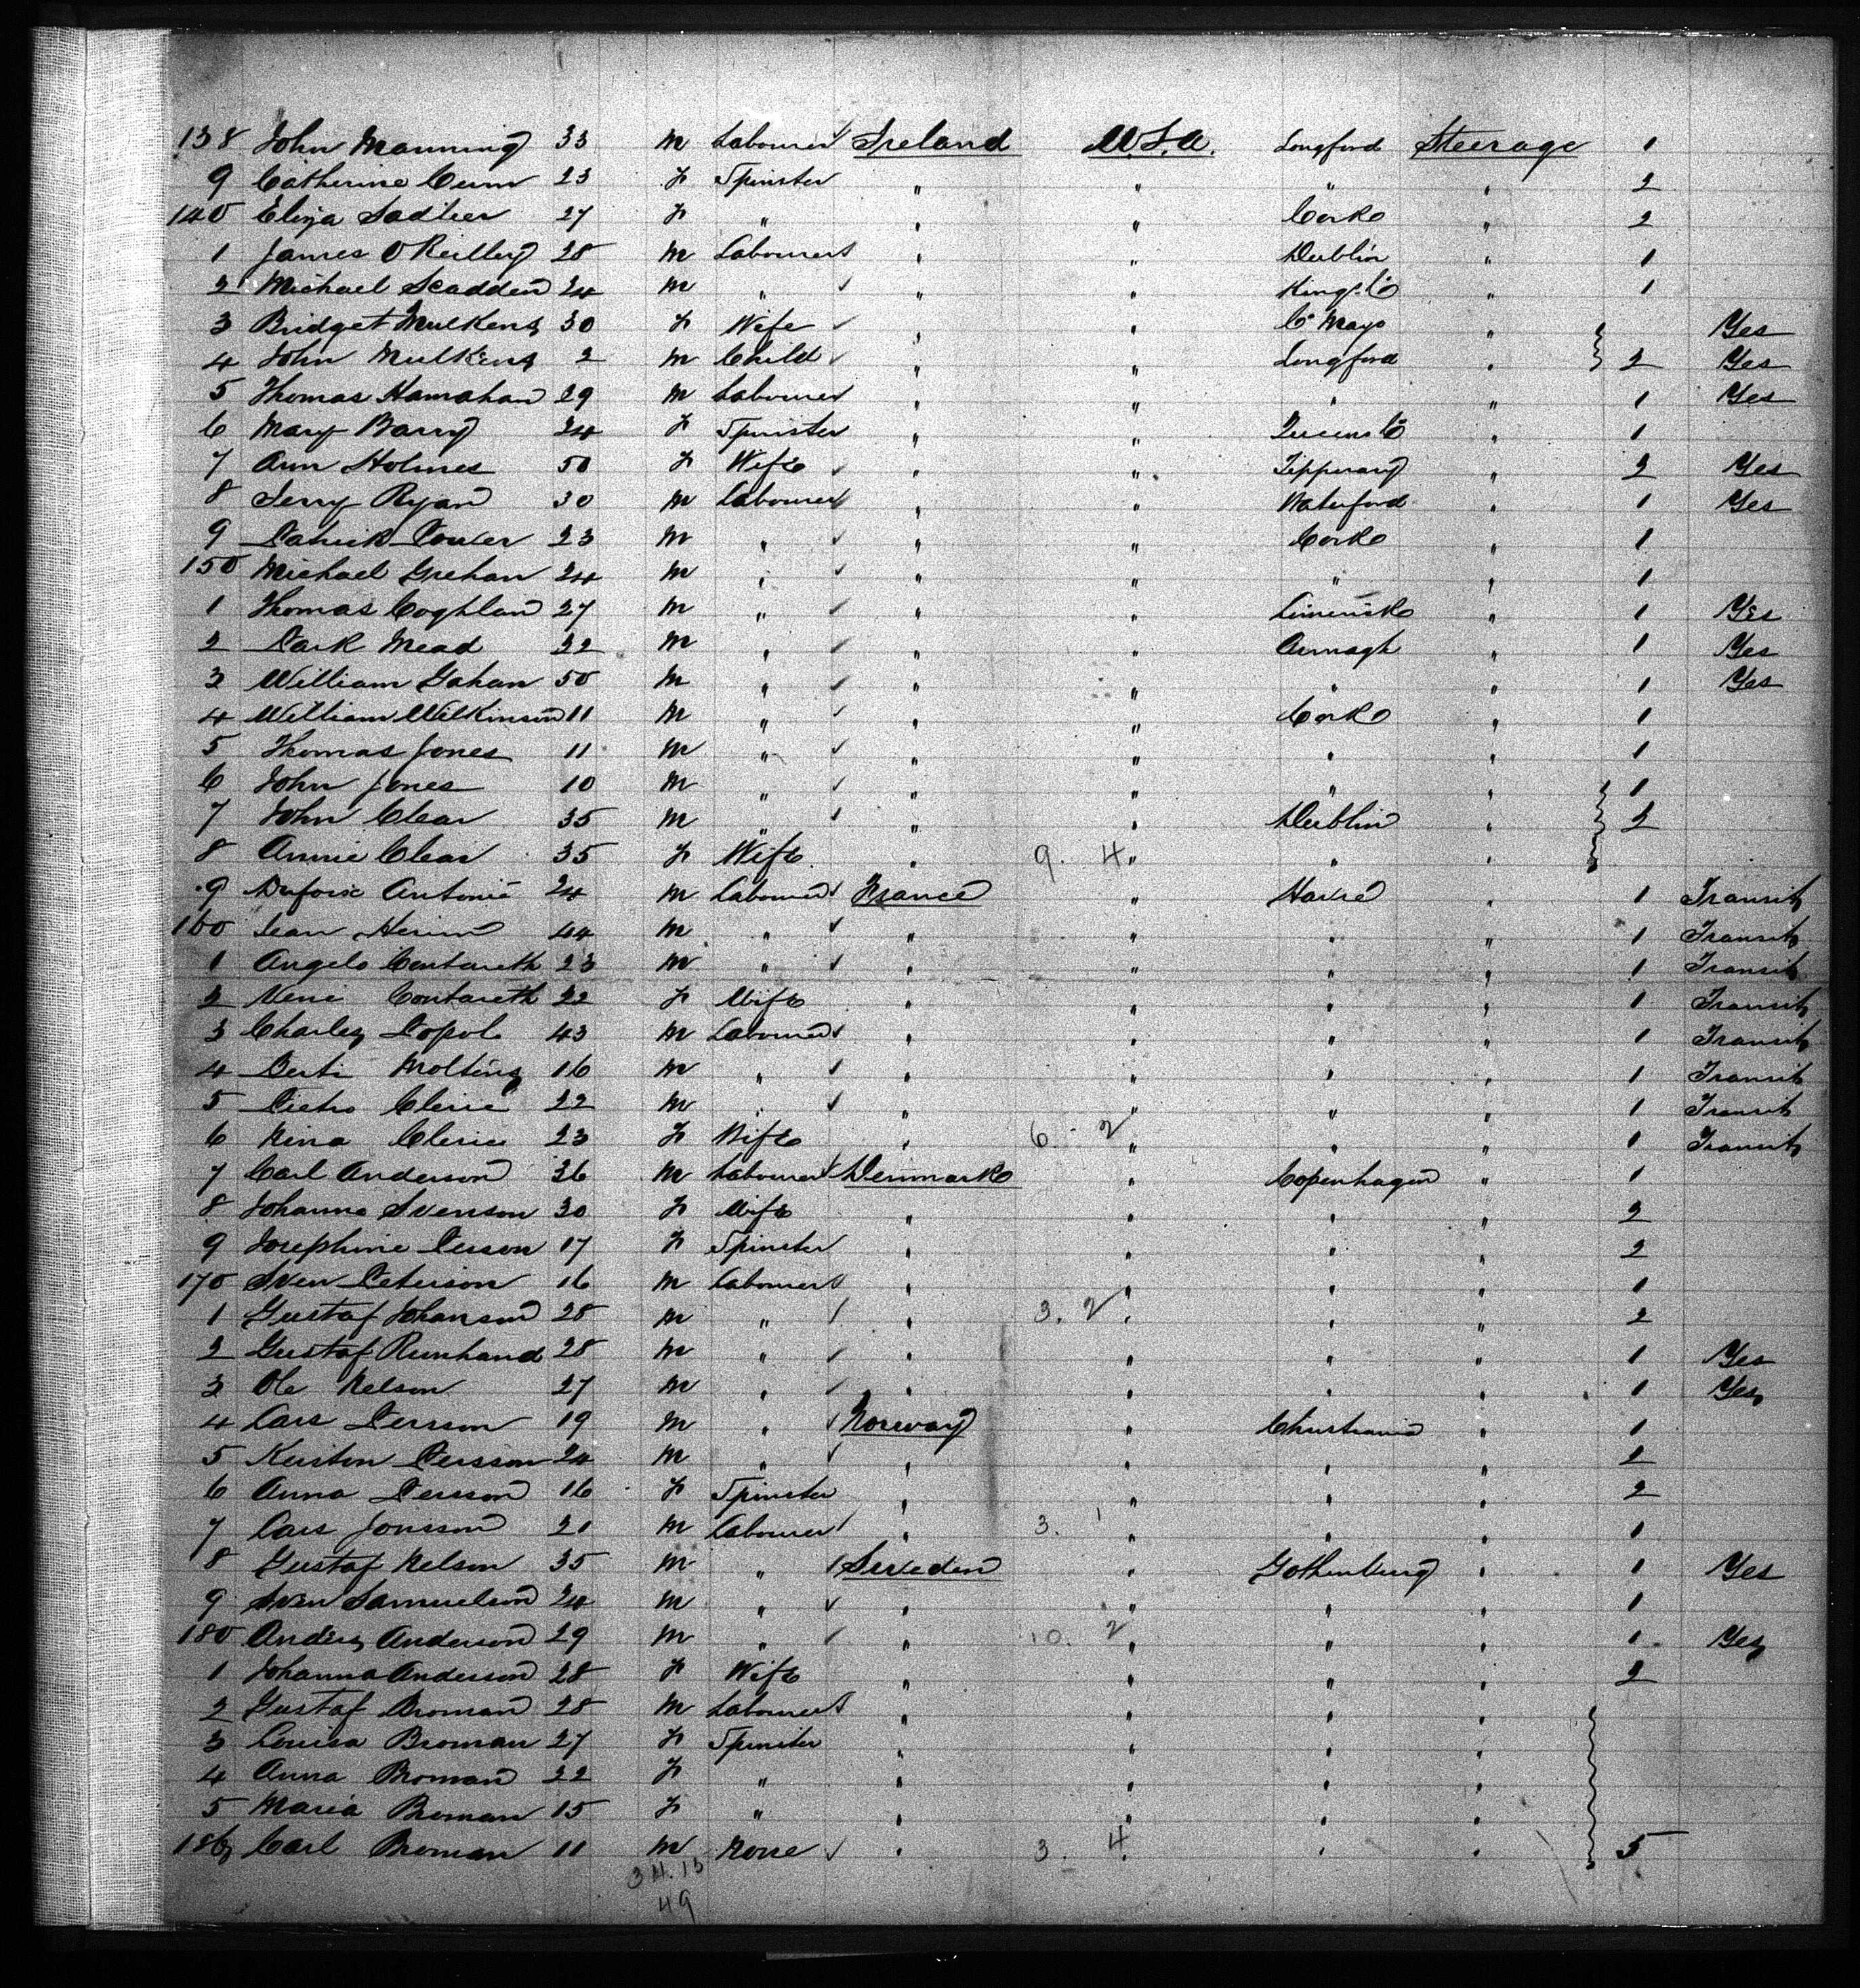 138 John Manning 33 M Labourer Ireland U.S.A. Longford Steerage 1
9 Catherine 23 F Spinster " " " " 2
140 Eliza Sadlier 27 F " " " Cork " 2
1 James O'Reilley 28 M Labourer " " Dublin " 1
2 Michael Scadden 24 M " " " Kings Co " 1
3 Bridget Mulkens 30 F Wife " " Co Mayo " Yes
4 John Mulkens 2 M Child " " Longford " 2 Yes
5 Thomas Hanrahan 29 M Labourer " " " " 1 Yes
6 Mary Barry 24 F Spinster " " Queens Co " 1
7 Ann Holmes 50 F Wife " " Tipperary " 2 Yes
8 Jerry Ryan 30 M Labourer " " Waterford " 1 Yes
9 Patrick Power 23 M " " " Cork " 1
150 Michael Grehan 24 M " " " " " 1
1 Thomas Coghlan 27 M " " " Limerick " 1 Yes
2 Park Mead 32 M " " " Armagh " 1 Yes
3 William Gahan 50 M " " " " " 1 Yes
4 William Wilkinson 11 M " " " Cork " 1
5 Thomas Jones 11 M " " " " " 1
6 John Jones 10 M " " " " " 1
7 John Clear 35 M " " " Dublin " 2
8 Annie Clear 35 F Wife " 9. 4 " " "
9 Antonie 24 M Labourer France " Havre " 1 Transit
160 Jean 44 M " " " " " 1 Transit
1 Angelo Contareth 23 M " " " " " 1 Transit
2 Contareth 22 F Wife " " " " 1 Transit
3 Charles Popol 43 M Labourer " " " " 1 Transit
4 Molting 16 M " " " " " 1 Transit
5 Pietro Cleric 22 M " " " " " 1 Transit
6 Nina Cleric 23 F Wife " 6. 2 " " " 1 Transit
7 Carl Anderson 36 M Labourer Denmark " Copenhagen " 1
8 Johanna Svenson 30 F Wife " " " " 2
9 Josephine Person 17 F Spinster " " " " 2
170 Sven Peterson 16 M Labourer " " " " 1
1 Gustaf Johanson 28 M " " 3. 2 " " " 2
2 Gustaf 28 M " " " " " 1 Yes
3 Ole Nelson 27 M " " " " " 1 Yes
4 Lars Persson 19 M " Norway " Christiania " 1
5 Kersten Persson 24 M " " " " " 2
6 Anna Persson 16 F Spinster " " " " 2
7 Lars Jonsson 21 M Labourer " 3. 1 " " " 1
8 Gustaf Nelson 35 M " Sweden " Gothenburg " 1 Yes
9 Sven Samuelson 24 M " " " " " 1
180 Anders Anderson 29 M " " 10. 2 " " " 1 Yes
1 Johanna Anderson 28 F Wife " " " " 2
2 Gustaf Broman 28 M Labourer " " " "
3 Louisa Broman 27 F Spinster " " " "
4 Anna Broman 22 F " " " " "
5 Maria Broman 15 F " " " " "
186 Carl Broman 11 M None " 3. 4 " " " 5
34.15
49